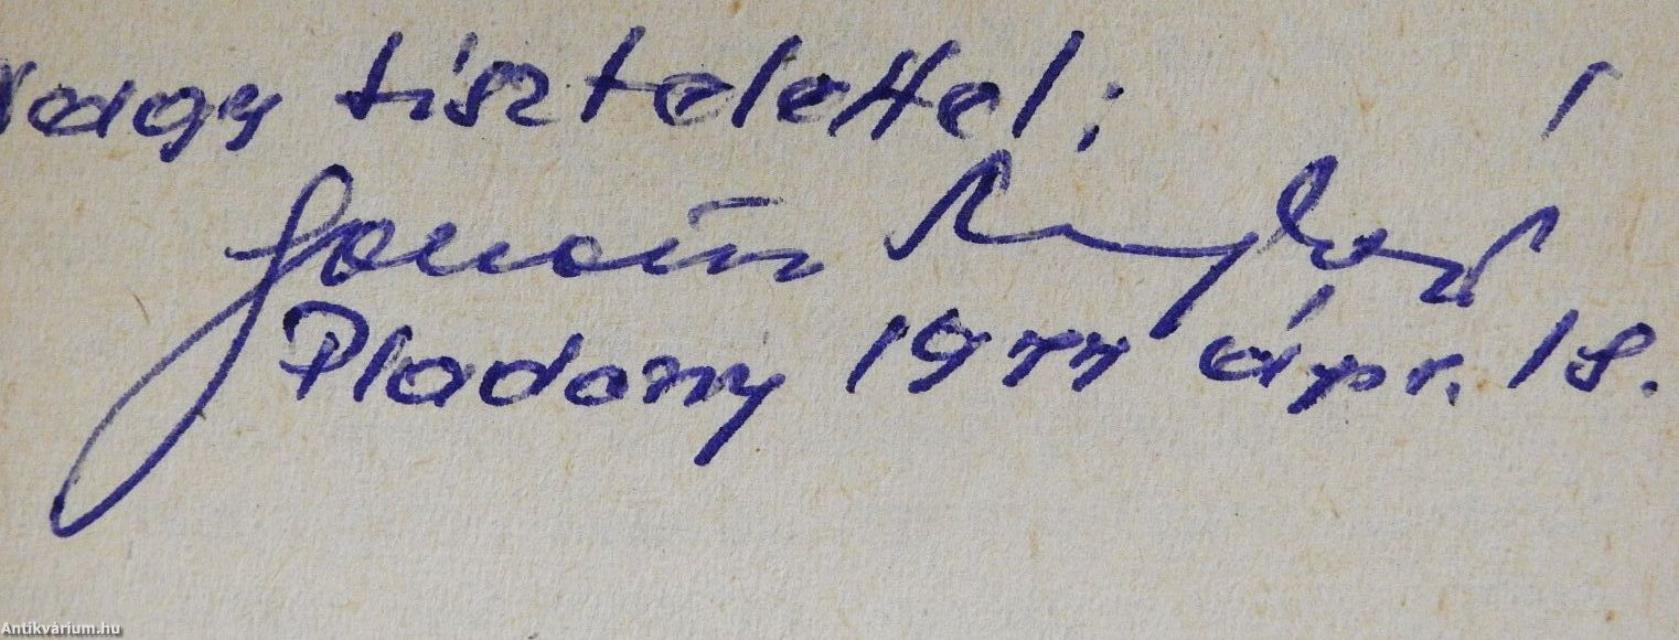 Nagy tisztelettel:
Pladány 1977 ápr. 18.
Antikvárium.hu